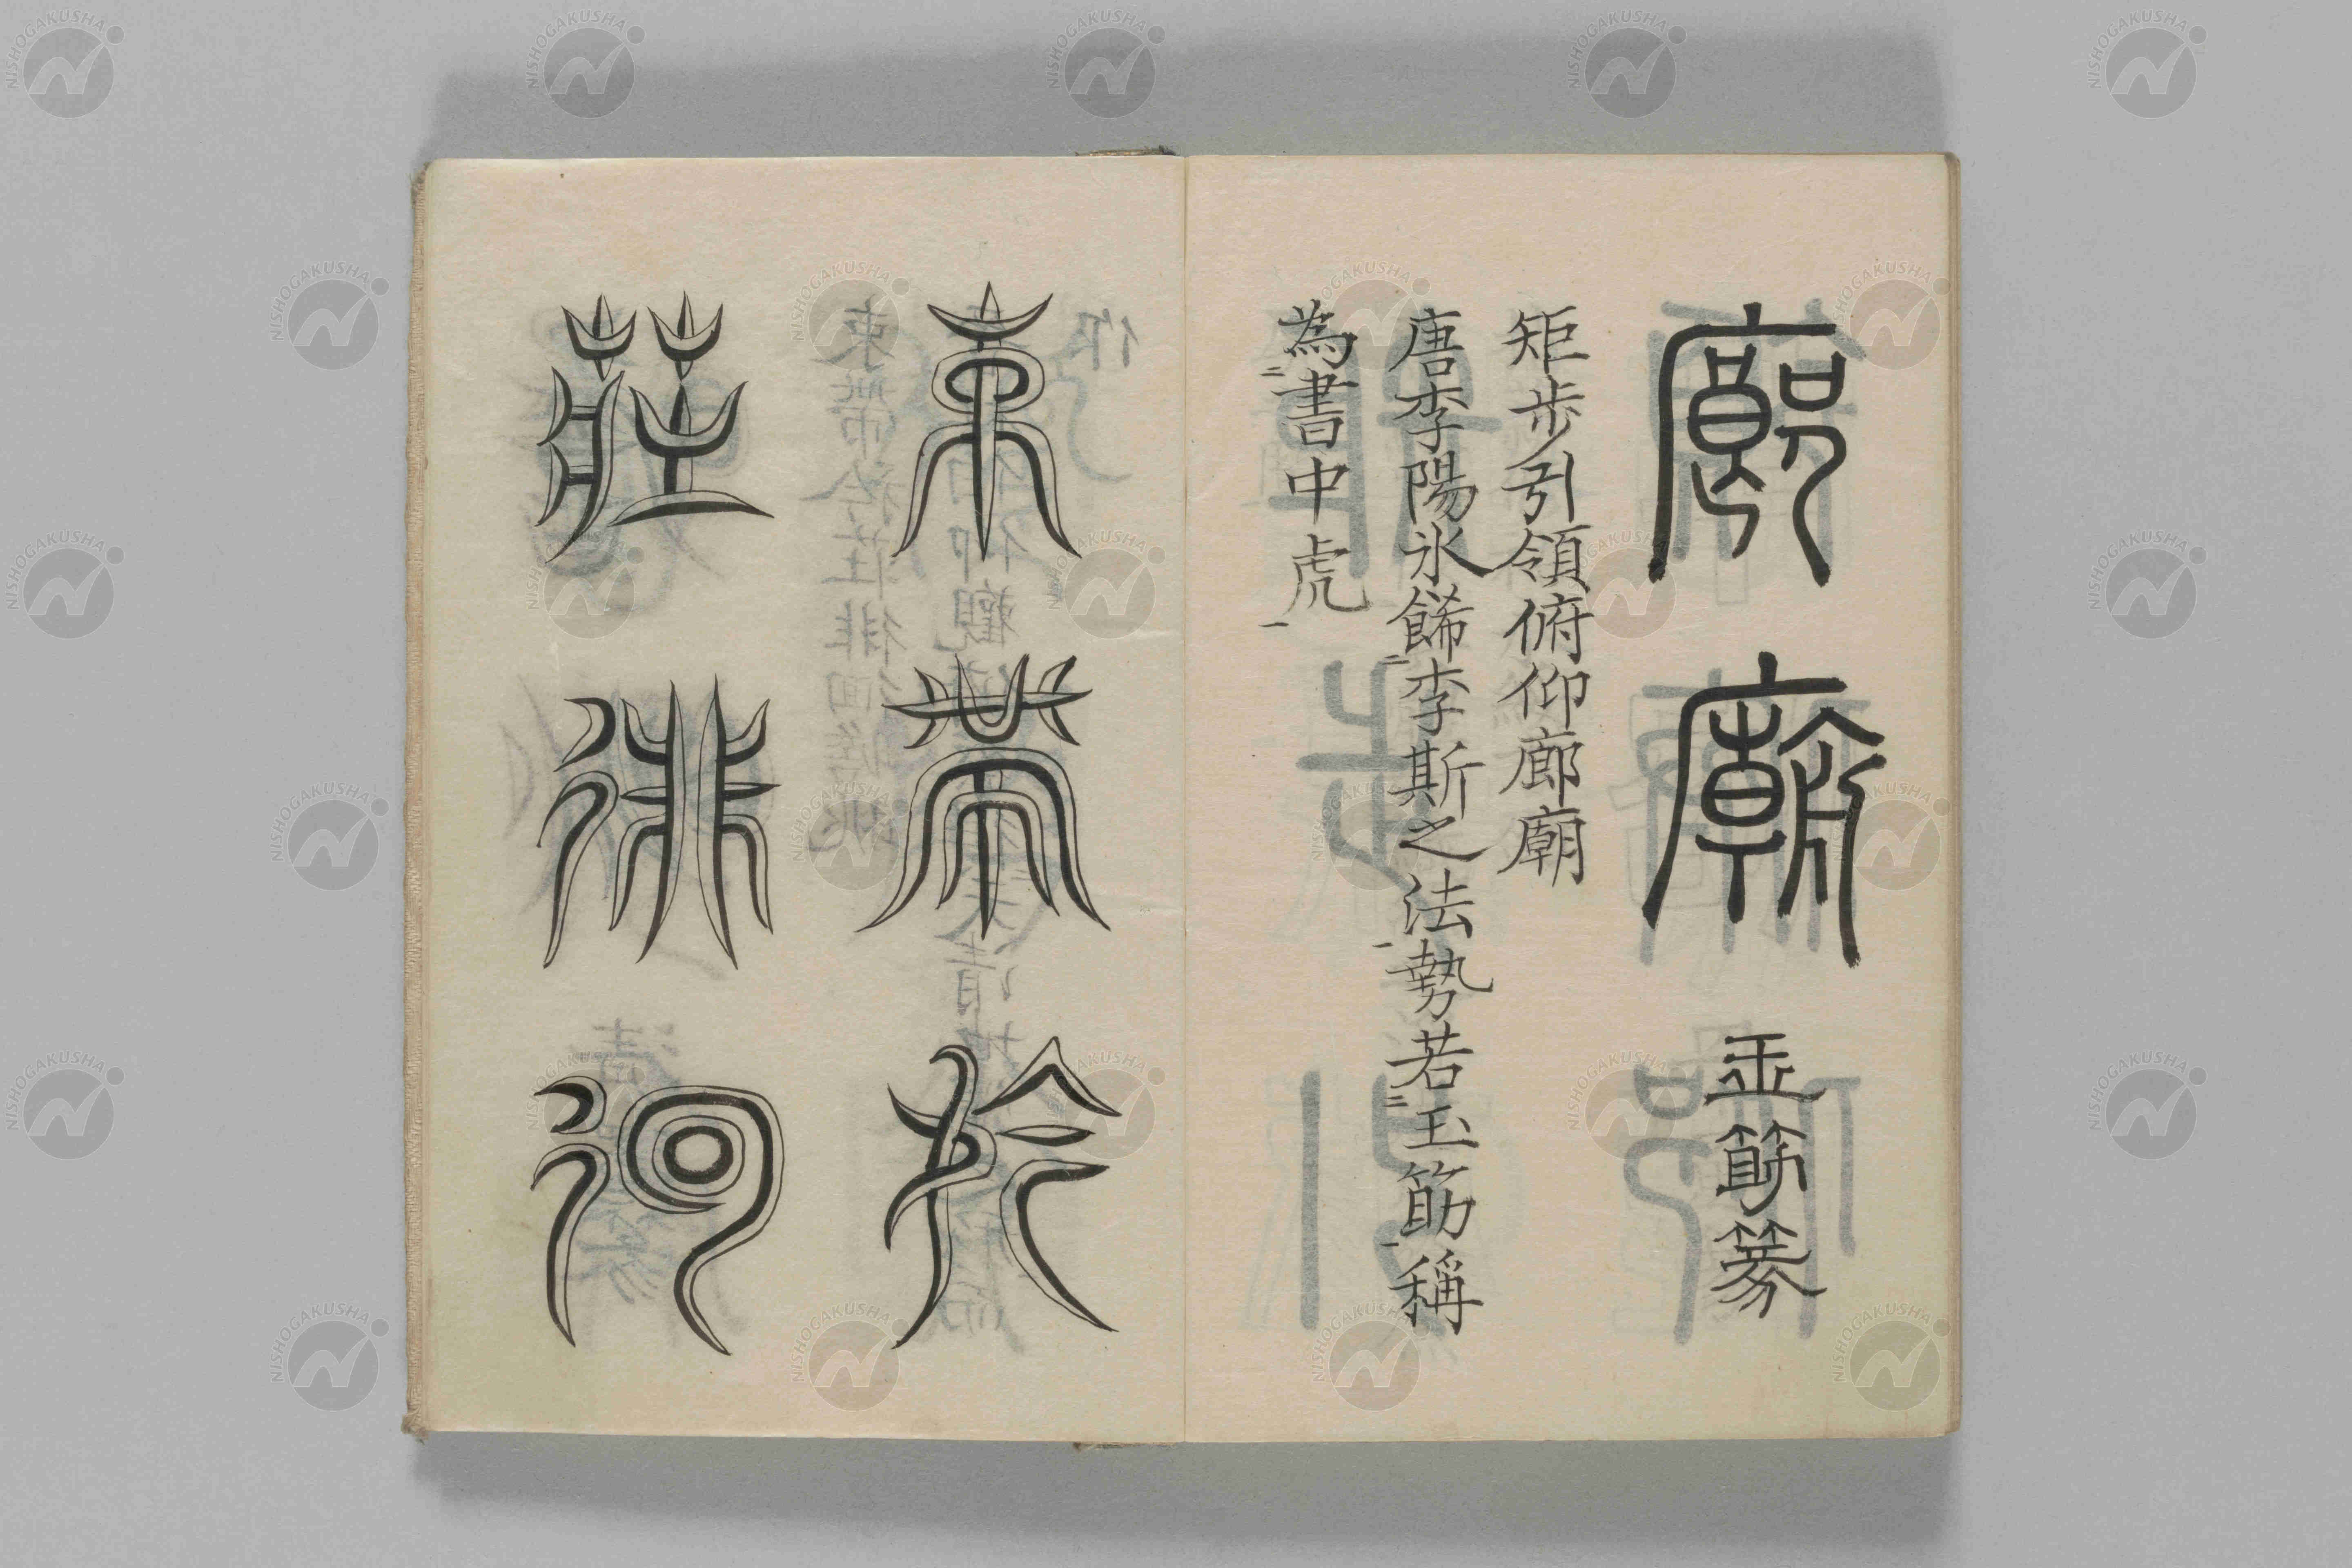 廊廟 玉筯篆
矩步引領俯仰廊廟
唐李陽氷餙李斯之法勢若玉筯稱
為書中虎
束帶矜
莊徘徊